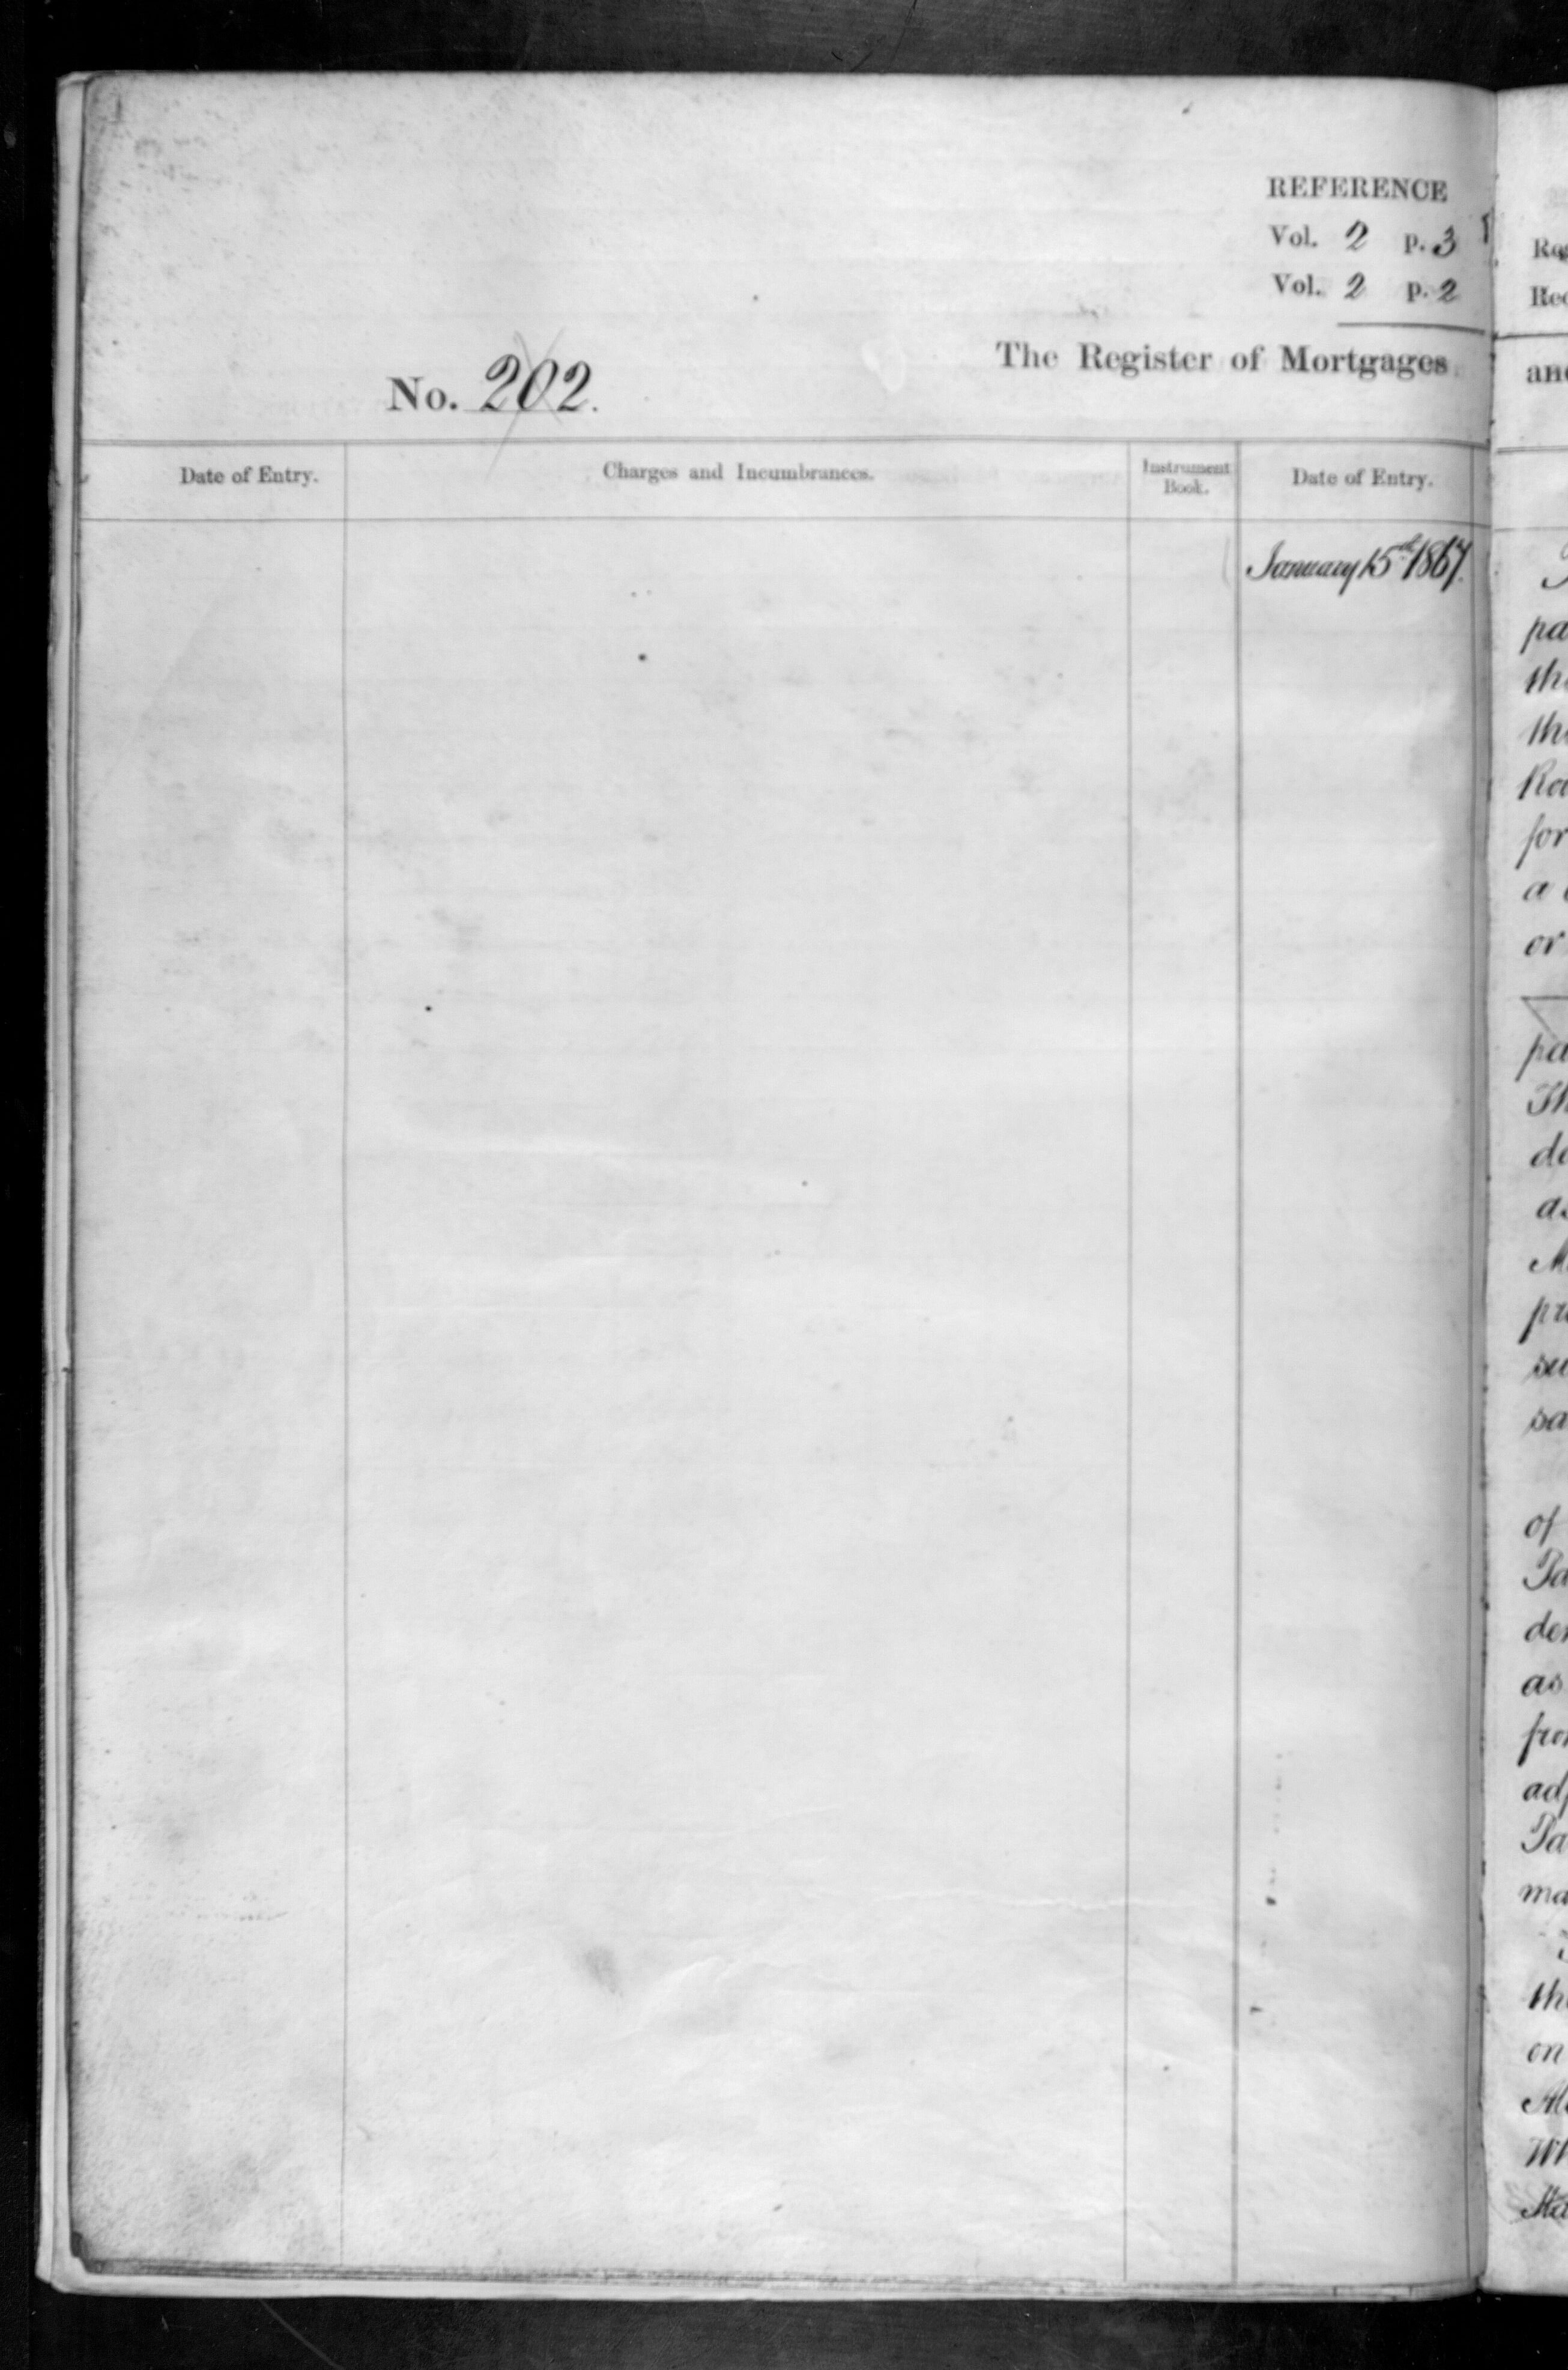 REFERENCE
Vol. 2 p. 3
Vol. 2 p. 2
No. 202.
The Register of Mortgages
Date of Entry.
Charges and Incumbrances.
Instrument
Book.
Date of Entry.
January 15th 1867.
Reg
Rec
and
pa
the
the
Roa
for
a
or
pa
Th
de
as
M
pro
su
sa
of
Pa
der
as
from
adj
Pa
ma
the
on
Al
Wh